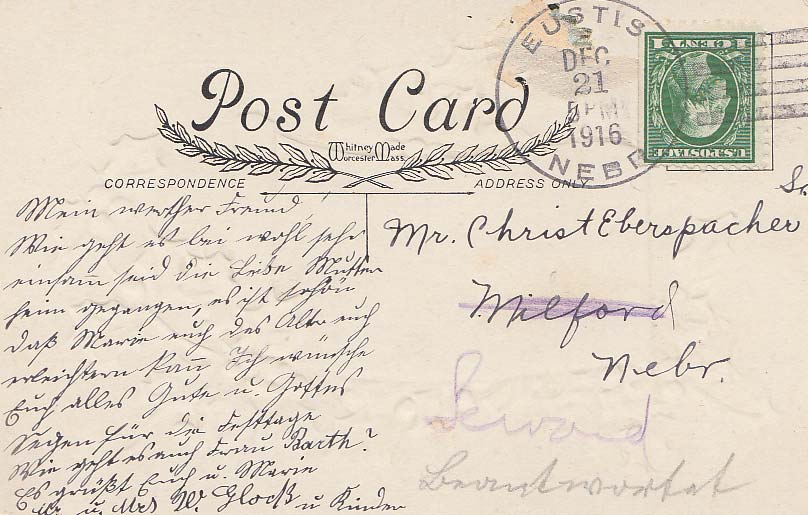 Post Card
Whitney Made
Worcester, Mass.
CORRESPONDENCE
ADDRESS ONLY
EUSTIS
DEC
21
5 PM
1916
NEBR
U.S. POSTAGE
1 CENT 1
Mein werther Freund,
Wie geht es bei wohl sehr
einsam seid die liebe Mutter
heim gegangen, es ist schön
daß Marie euch des Alter euch
erleichtern kann Ich wünsche
Euch alles Gute u. Gottes
Segen für die Festtage
Wie geht es auch Frau Barth?
Es grüßt Euch u. Marie
Mr. u. Mrs W. Glock u Kinder
Sr
Mr. Christ Eberspacher
Milford
Nebr.
Seward
Beantwortet